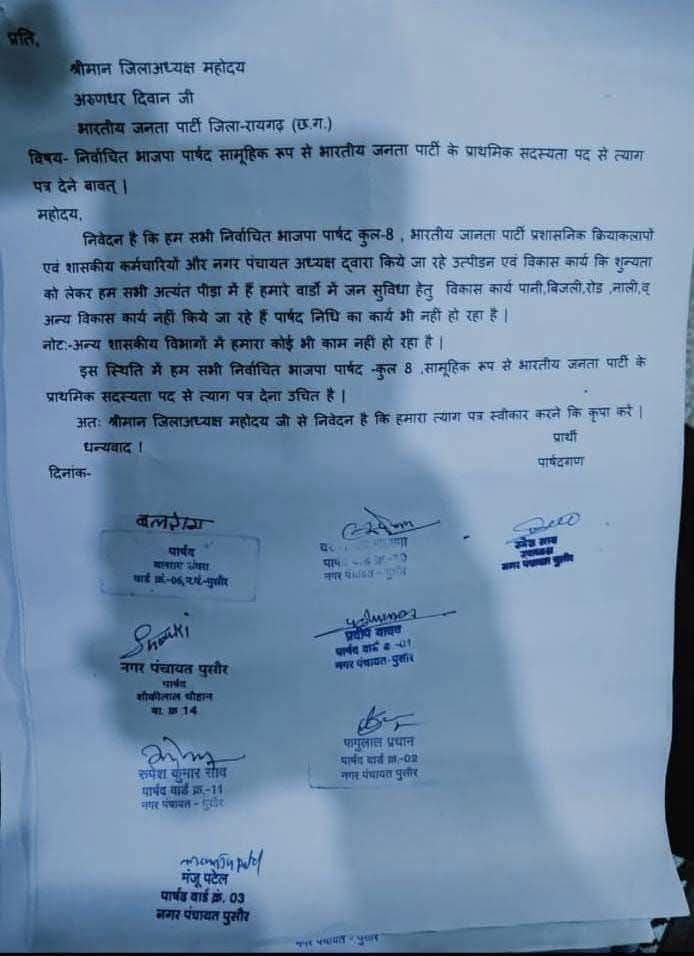 प्रति,
श्रीमान जिलाअध्यक्ष महोदय
अरुणधर दिवान जी
भारतीय जनता पार्टी जिला-रायगढ़ (छ.ग.)
विषय- निर्वाचित भाजपा पार्षद सामूहिक रूप से भारतीय जनता पार्टी के प्राथमिक सदस्यता पद से त्याग
पत्र देने बावत् |
महोदय,
निवेदन है कि हम सभी निर्वाचित भाजपा पार्षद कुल-8 , भारतीय जानता पार्टी प्रशासनिक क्रियाकलापों
एवं शासकीय कर्मचारियों और नगर पंचायत अध्यक्ष द्वारा किये जा रहे उत्पीडन एवं विकास कार्य कि शुन्यता
को लेकर हम सभी अत्यंत पीड़ा में हैं हमारे वार्डो में जन सुविधा हेतु विकास कार्य पानी,बिजली,रोड ,नाली,व्
अन्य विकास कार्य नहीं किये जा रहे हैं पार्षद निधि का कार्य भी नहीं हो रहा है |
नोट:-अन्य शासकीय विभागों में हमारा कोई भी काम नहीं हो रहा है |
इस स्थिति में हम सभी निर्वाचित भाजपा पार्षद -कुल 8 ,सामूहिक रूप से भारतीय जनता पार्टी के
प्राथमिक सदस्यता पद से त्याग पत्र देना उचित है |
अतः श्रीमान जिलाअध्यक्ष महोदय जी से निवेदन है कि हमारा त्याग पत्र स्वीकार करने कि कृपा करे |
धन्यवाद !
प्रार्थी
पार्षदगण
दिनांक-
पार्षद
वार्ड क्रं.-06, न.पं.-पुसौर
नगर पंचायत - पुसौर
उमेश साव
उपाध्यक्ष
नगर पंचायत पुसौर
नगर पंचायत पुसौर
पार्षद
शौकीलाल चौहान
वा. क्र 14
प्रदीप यादव
पार्षद वार्ड क्र.-01
नगर पंचायत-पुसौर
रुपेश कुमार साव
पार्षद वार्ड क्र.-11
नगर पंचायत - पुसौर
पागुलाल प्रधान
पार्षद वार्ड क्र.-02
नगर पंचायत पुसौर
मंजू पटेल
पार्षद वार्ड क्रं. 03
नगर पंचायत पुसौर
नगर पंचायत - पुसौर